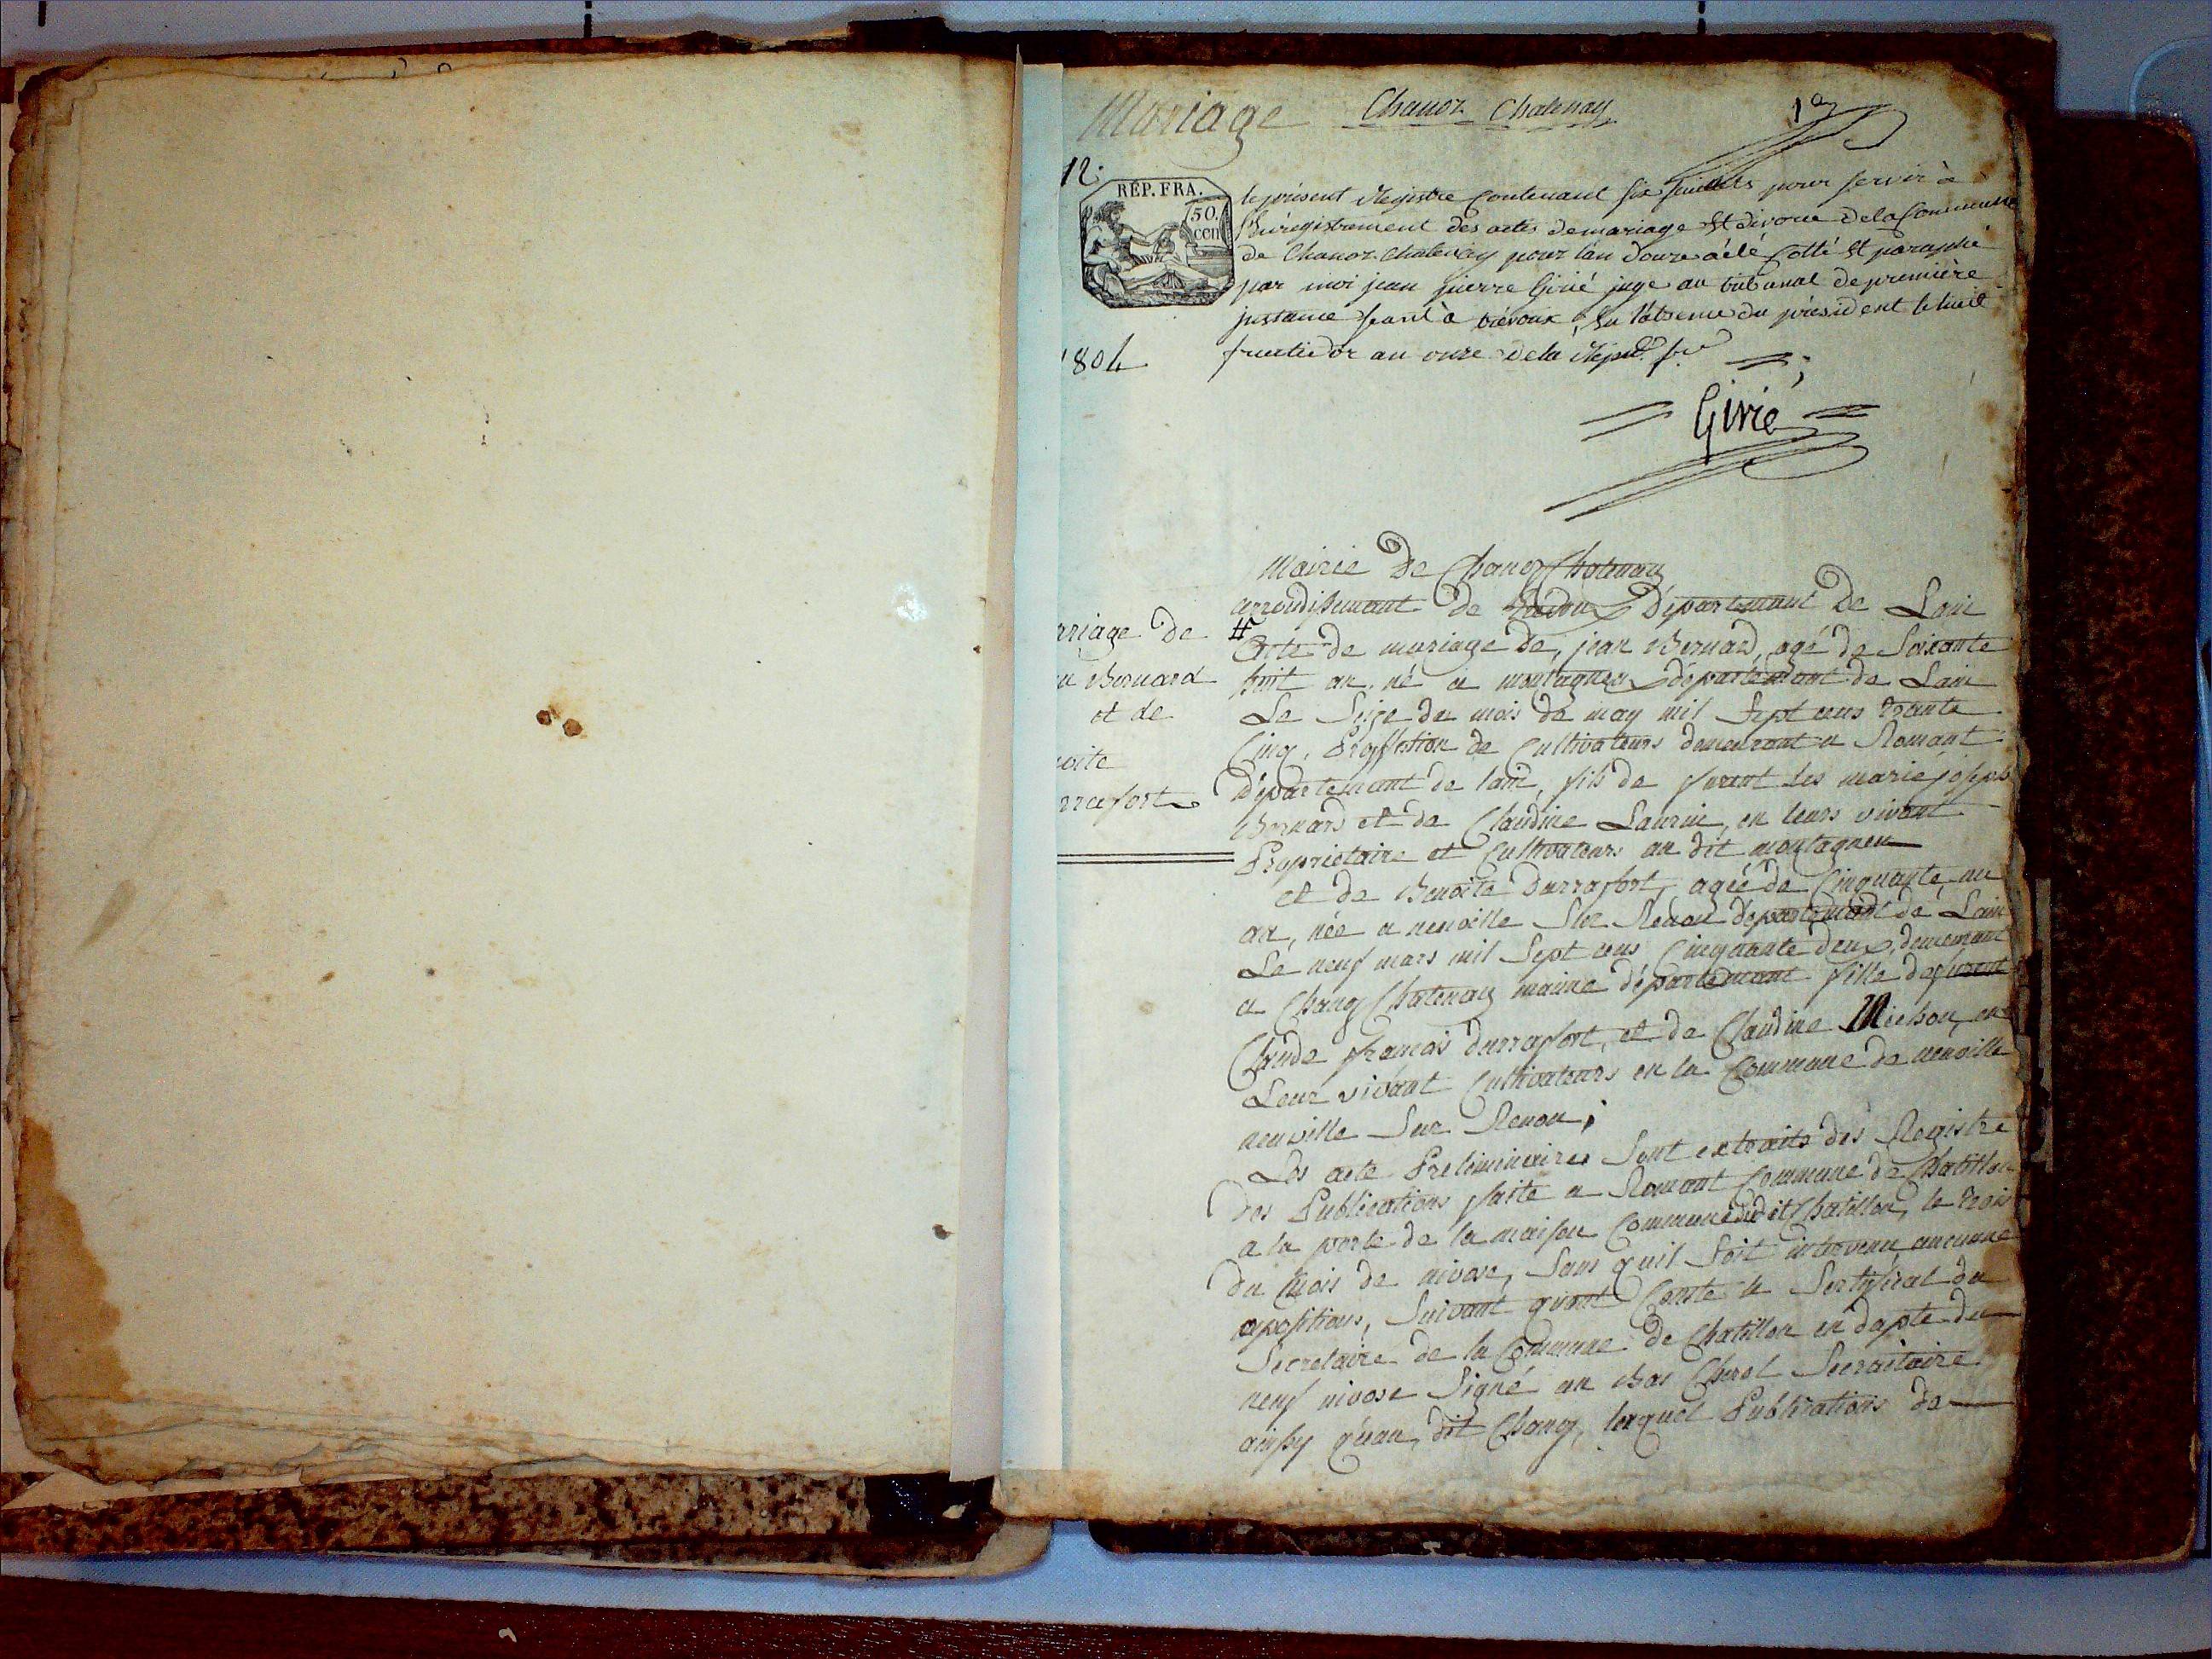 Mariage Chanoz Chatenay 1er
12.
RÉP. FRA.
50.
cen
le présent Registre Contenant six feuillets pour servir à
l'enregistrement des actes de mariage Et divorce de la Commune
de Chanoz Chatenay pour l'an douze a été Cotté Et paraphé
par moi jean pierre Girié juge au tribunal de première
jnstance séant à trévoux, En l'absence du président le huit
1804
fructidor an onze de la Répub. fr.
Girié
Mairie de Chanoz Chatenay
arrondissemant de Département De Lain
Acte de mariage de, jean Bernard, agé de Soixante
huit an né a montagneu département de Lain
Le Seize du mois de may mil Sept cens trante
Cinq, Proffestion de Cultivateurs demeurant a Romant
Département de lain, fils de furent les marié joseph
Bernard et de Claudine Laurin, en leurs vivant
Proprietaire et Cultivateurs au dit montagneu
et de Benoite Durrafort, agée de Cinquante un
an, née a neuville Sur Renon département de Lain
Le neuf mars mil Sept cens Cinquante deux, demeurant
a Chanoz Chatenay maime département fille de furent
Claude français durrafort, et de Claudine Michon, en
Leur vivant Cultivateurs en la Commune de neuville
neuville Sur Renon;
Les acte Preliminaires Sont extraits des Registre
des Publications faite a Romant Commune de Chatillon
a la porte de la maison Commune dudit Chatillon, le trois
du mois de nivose, Sans quil Soit intrevenu aucune
opositions, Suivant quont Conste le Sertificat du
Secretaire de la Commune de Chatillon en dapte du
neuf nivose Signé au bas Cherel Secraitaire
ainsy qu'au, dit Chanoz, lesquel Publications de
rriage de
n Bernard
et de
oite
rrafort